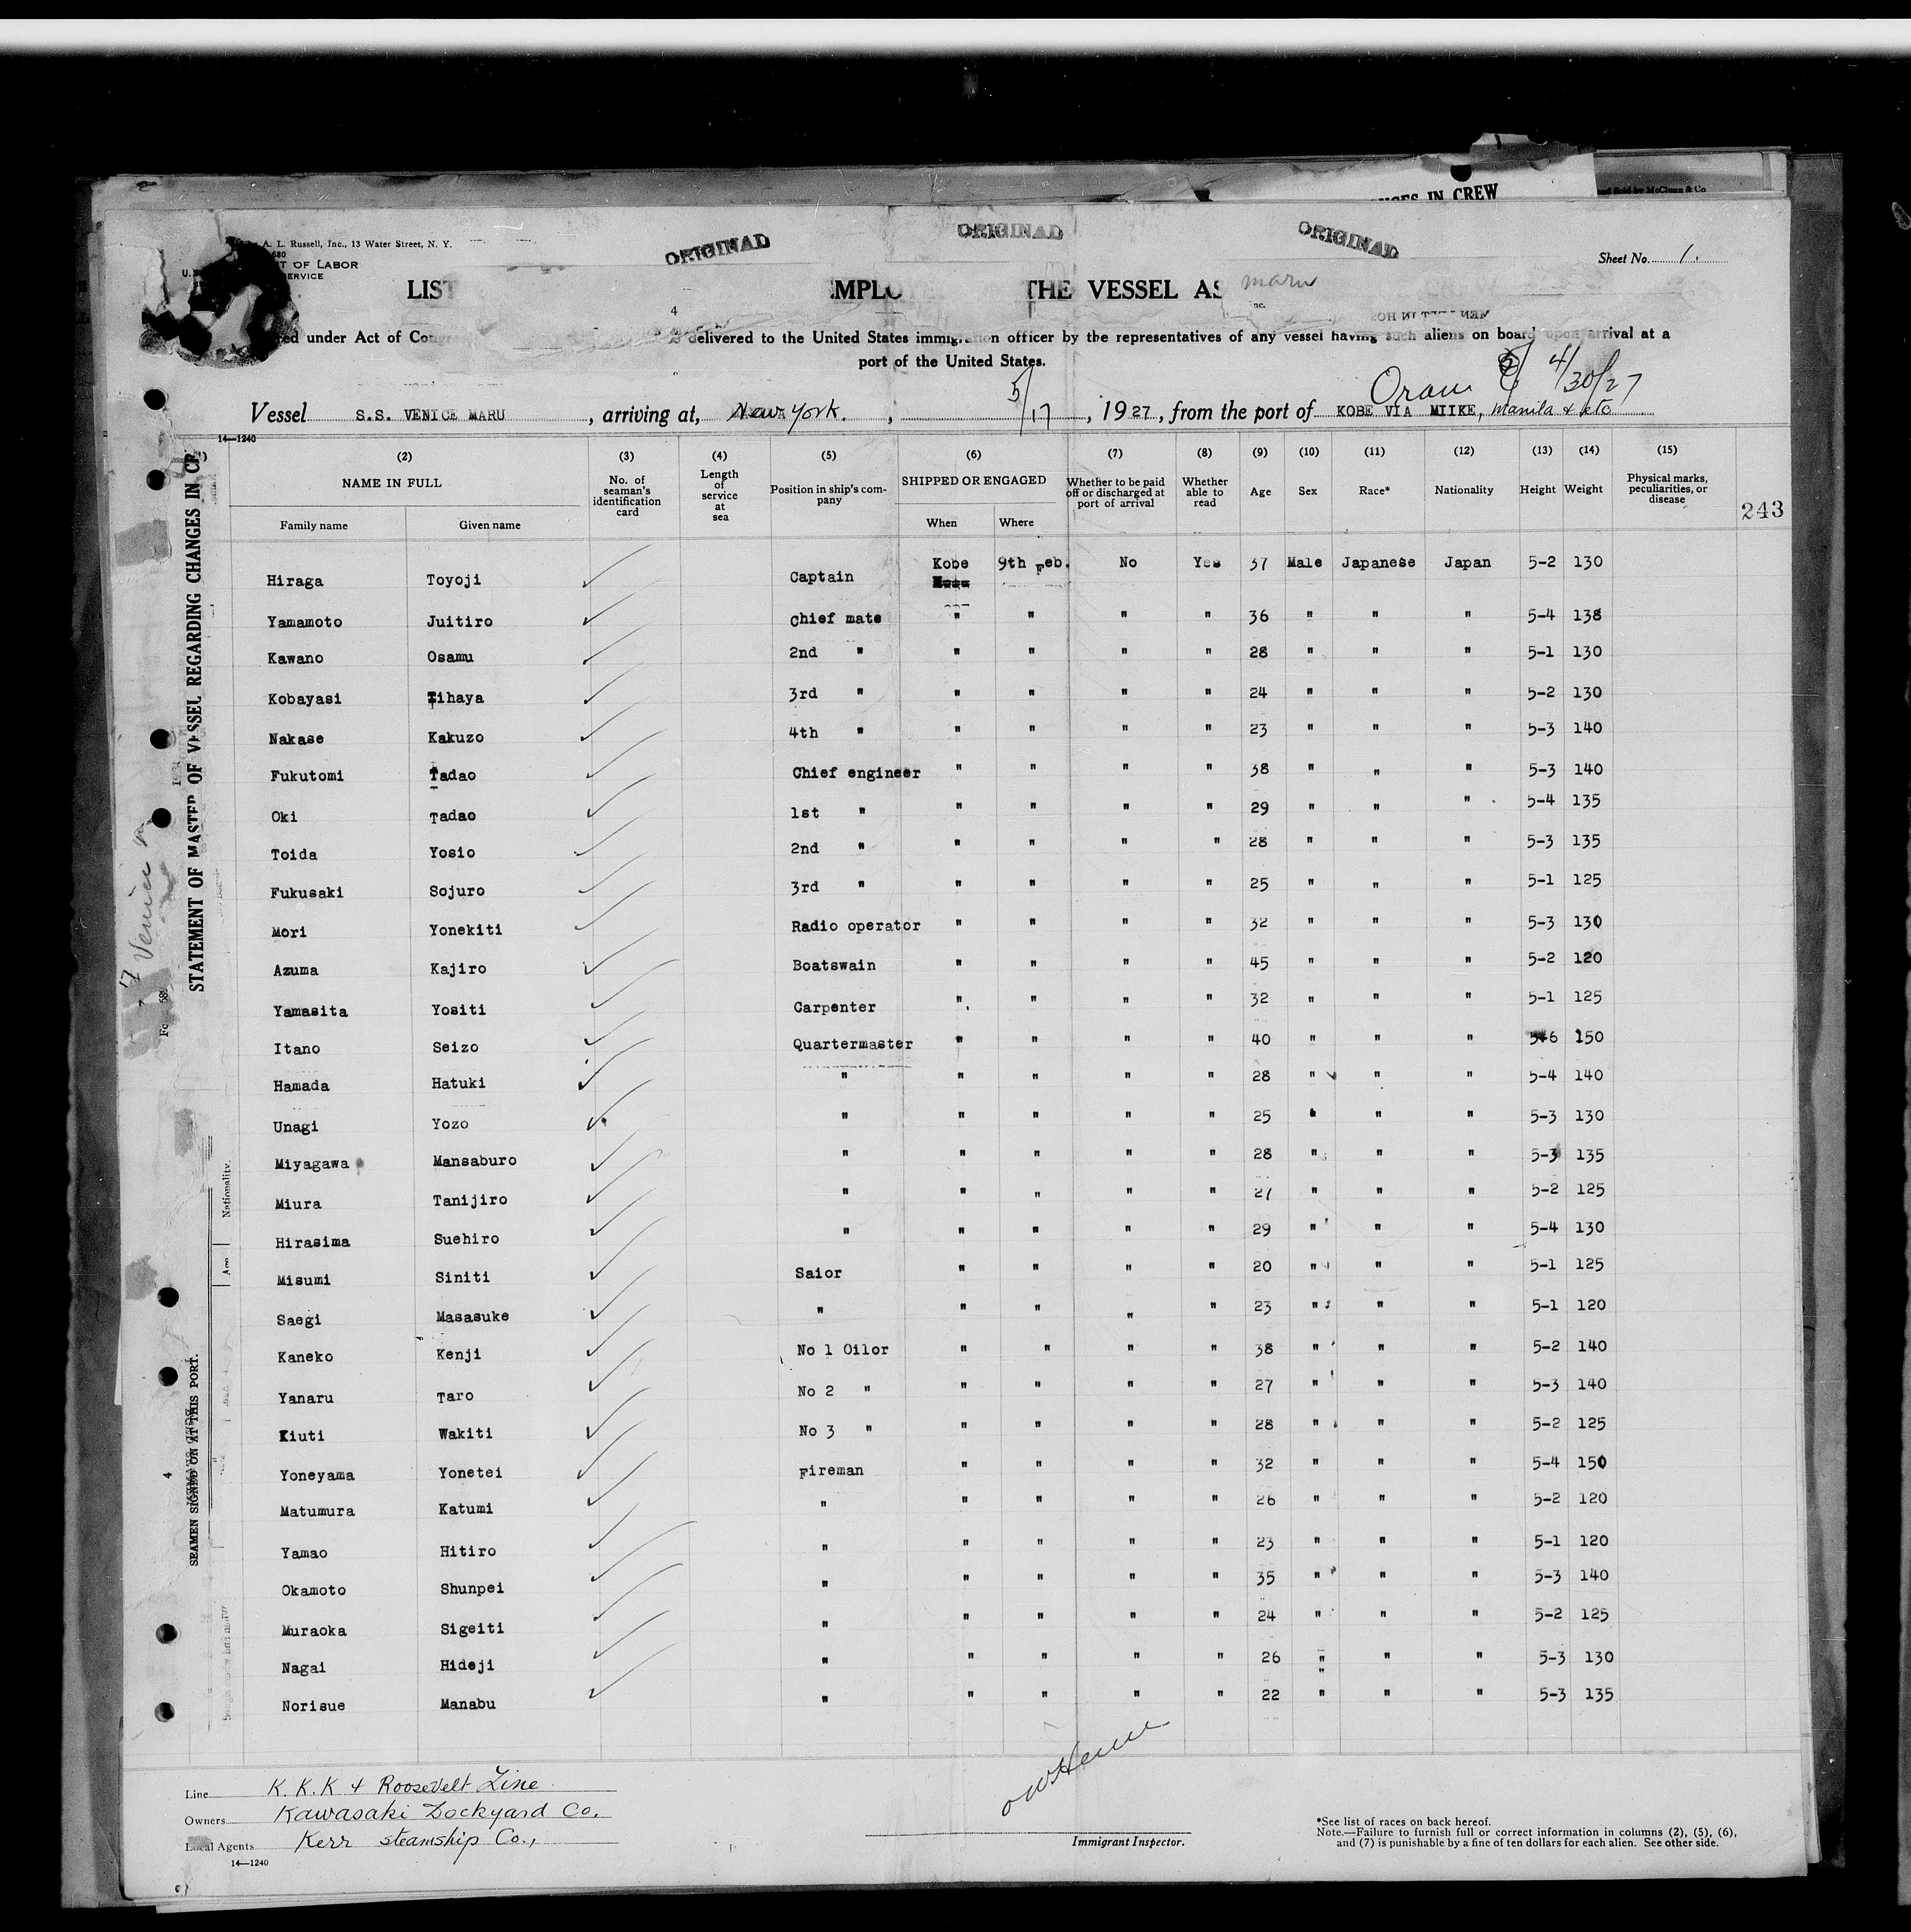 ANGES IN CREW
and Sold by McClunn & Co
A. L. Russell, Inc., 13 Water Street, N. Y.
680
T OF LABOR
SERVICE
ORIGINAL
ORIGINAL
ORIGINAL
Sheet No. 1.
LIST EMPLO THE VESSEL AS
maru
4
red under Act of Congress delivered to the United States immigration officer by the representatives of any vessel having such aliens on board upon arrival at a
port of the United States.
Oran 4/30/27
Vessel S.S. VENICE MARU, arriving at, New York, 5/17, 1927, from the port of KOBE VIA MIIKE, Manila & etc
14—1240
(2) (3) (4) (5) (6) (7) (8) (9) (10) (11) (12) (13) (14) (15)
NAME IN FULL
Family name
Given name
No. of seaman's identification card
Length of service at sea
Position in ship's company
SHIPPED OR ENGAGED
When
Where
Whether to be paid off or discharged at port of arrival
Whether able to read
Age
Sex
Race*
Nationality
Height
Weight
Physical marks, peculiarities, or disease
243
Hiraga Toyoji Captain Kobe 9th Feb. No Yes 37 Male Japanese Japan 5-2 130
Yamamoto Juitiro Chief mate " " " " 36 " " " 5-4 138
Kawano Osamu 2nd " " " " " 28 " " " 5-1 130
Kobayasi Tihaya 3rd " " " " " 24 " " " 5-2 130
Nakase Kakuzo 4th " " " " " 23 " " " 5-3 140
Fukutomi Tadao Chief engineer " " " " 38 " " " 5-3 140
Oki Tadao 1st " " " " " 29 " " " 5-4 135
Toida Yosio 2nd " " " " " 28 " " " 5-3 135
Fukusaki Sojuro 3rd " " " " " 25 " " " 5-1 125
Mori Yonekiti Radio operator " " " " 32 " " " 5-3 130
Azuma Kajiro Boatswain " " " " 45 " " " 5-2 120
Yamasita Yositi Carpenter " " " " 32 " " " 5-1 125
Itano Seizo Quartermaster " " " " 40 " " " 5-6 150
Hamada Hatuki " " " " " 28 " " " 5-4 140
Unagi Yozo " " " " " 25 " " " 5-3 130
Miyagawa Mansaburo " " " " " 28 " " " 5-3 135
Miura Tanijiro " " " " " 27 " " " 5-2 125
Hirasima Suehiro " " " " " 29 " " " 5-4 130
Misumi Siniti Saior " " " " 20 " " " 5-1 125
Saegi Masasuke " " " " " 23 " " " 5-1 120
Kaneko Kenji No 1 Oilor " " " " 38 " " " 5-2 140
Yanaru Taro No 2 " " " " " 27 " " " 5-3 140
Kiuti Wakiti No 3 " " " " " 28 " " " 5-2 125
Yoneyama Yonetei Fireman " " " " 32 " " " 5-4 150
Matumura Katumi " " " " " 26 " " " 5-2 120
Yamao Hitiro " " " " " 23 " " " 5-1 120
Okamoto Shunpei " " " " " 35 " " " 5-3 140
Muraoka Sigeiti " " " " " 24 " " " 5-2 125
Nagai Hideji " " " " " 26 " " " 5-3 130
Norisue Manabu " " " " " 22 " " " 5-3 135
Line K.K.K & Roosevelt Line
Owners Kawasaki Dockyard Co.
Local Agents Kerr steamship Co.,
14—1240
Immigrant Inspector.
*See list of races on back hereof.
Note.—Failure to furnish full or correct information in columns (2), (5), (6),
and (7) is punishable by a fine of ten dollars for each alien. See other side.
STATEMENT OF MASTER OF VESSEL REGARDING CHANGES IN CR
Venice
Nationality.
SEAMEN SIGNED ON AT THIS PORT.
4